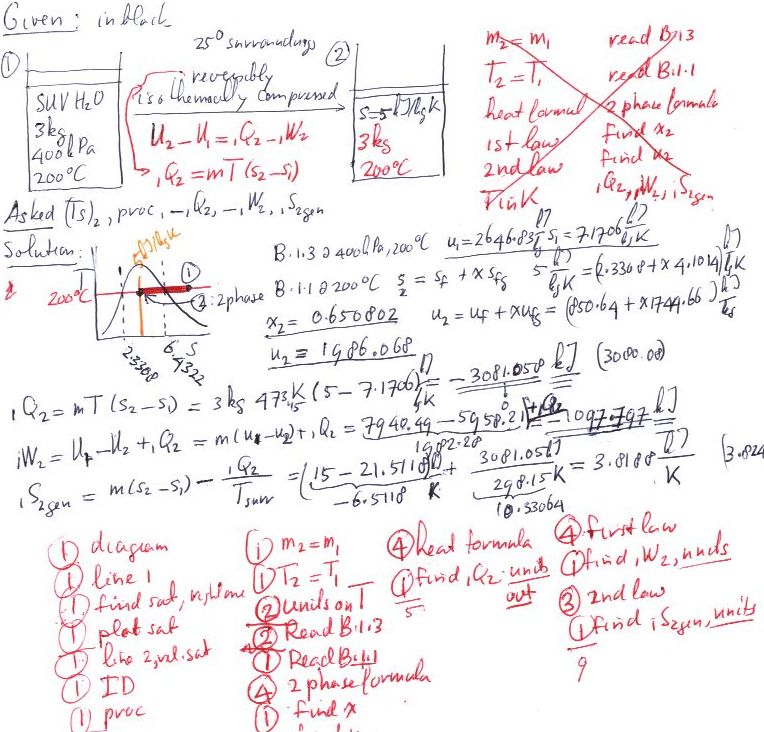 Given: in black
25° surroundings
① ②
reversibly
isothermally compressed
SUV H2O
3kg
400kPa
200°C
U2 - U1 = 1Q2 - 1W2
1Q2 = mT(s2 - s1)
s=5 kJ/kgK
3kg
200°C
m2 = m1 read B.1.3
T2 = T1 read B.1.1
heat formul 2 phase formula
1st law find x2
2nd law find u2
T in K 1Q2, 1W2, 1S2gen
Asked (Ts)2, proc, -, Q2, -, W2, 1S2gen
Solution:
5kJ/kgK
T
200°C
①
②: 2phase
2.3308 6.4322 s
B.1.3 @ 400kPa, 200°C u1 = 2646.83 kJ/kg s1 = 7.1706 kJ/kgK
B.1.1 @ 200°C s2 = sf + x sfg 5 kJ/kgK = (2.3308 + x 4.1014) kJ/kgK
x2 = 0.650802 u2 = uf + xufg = (850.64 + x1744.66) kJ/kg
u2 = 1986.068
1Q2 = mT(s2 - s1) = 3kg 473.15K (5 - 7.1706) kJ/kgK = -3081.058 kJ (3080.08)
1W2 = U1 - U2 + 1Q2 = m(u1 - u2) + 1Q2 = 7940.49 - 5958.21 + 1Q2 = -1097.797 kJ
1982.28
1S2gen = m(s2 - s1) - 1Q2/Tsurr = (15 - 21.5118) kJ/K + 3081.05kJ/298.15K = 3.8188 kJ/K (3.824
-6.5118 10.33064
① diagram
① line 1
① find sat, right one
① plot sat
① line 2, rel. sat
① ID
① proc
① m2 = m1
① T2 = T1
② units on T
② Read B.1.3
① Read B.1.1
④ 2 phase formula
① find x
④ heat formula
① find 1Q2 units
out
5
④ first law
① find 1W2, units
③ 2nd law
① find 1S2gen, units
9